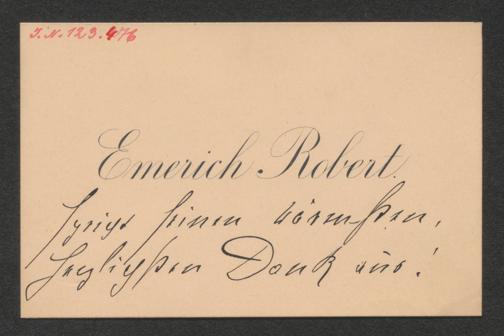 I.N. 123.476
Emerich Robert.
spricht seinen wärmsten,
herzlichsten Dank aus!